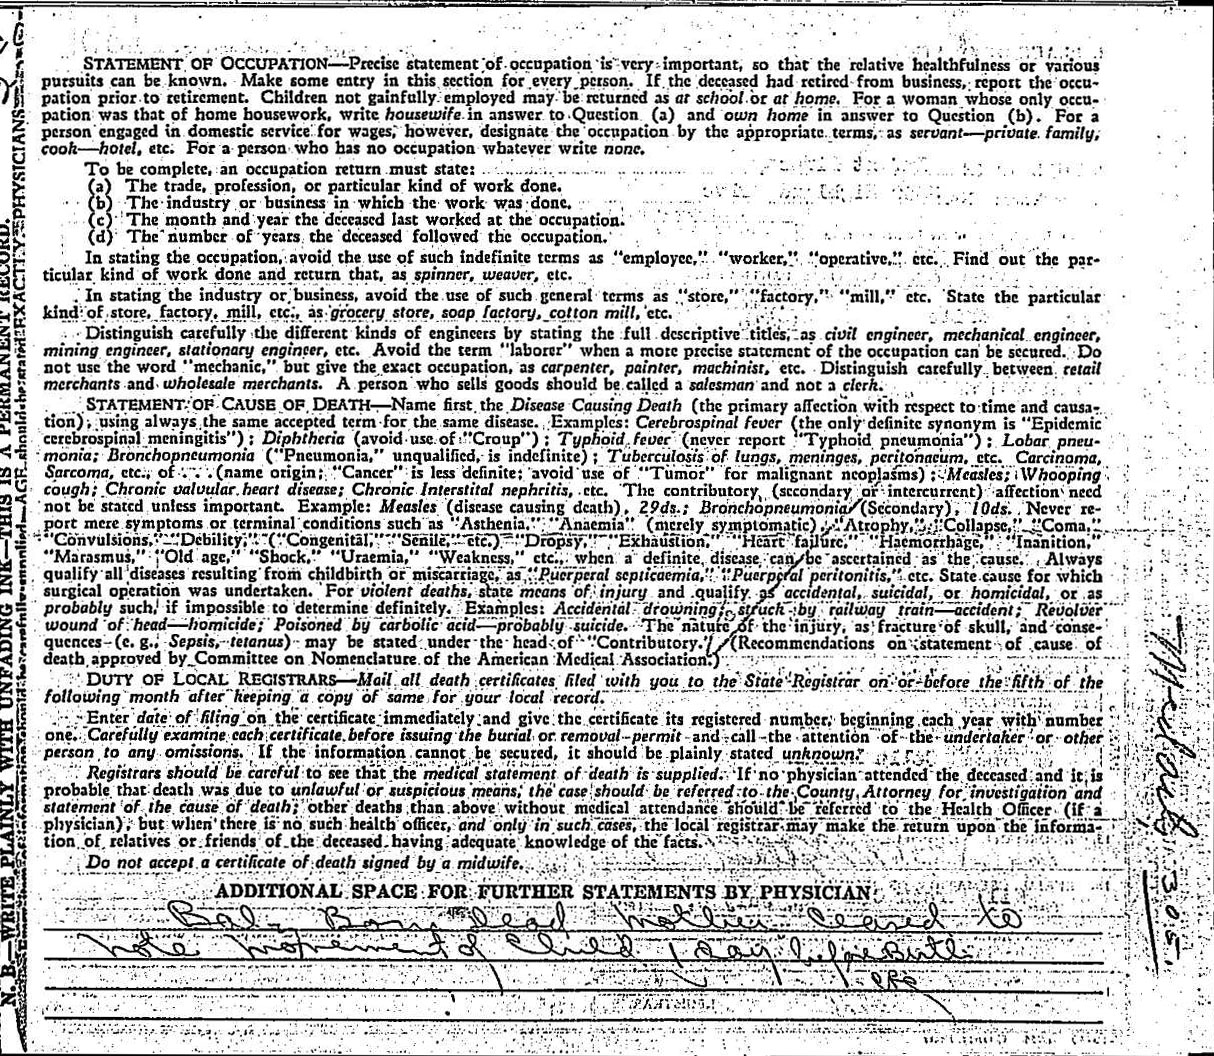 STATEMENT OF OCCUPATION—Precise statement of occupation is very important, so that the relative healthfulness or various
pursuits can be known. Make some entry in this section for every person. If the deceased had retired from business, report the occu-
pation prior to retirement. Children not gainfully employed may be returned as at school or at home. For a woman whose only occu-
pation was that of home housework, write housewife in answer to Question (a) and own home in answer to Question (b). For a
person engaged in domestic service for wages, however, designate the occupation by the appropriate terms, as servant—private family,
cook—hotel, etc. For a person who has no occupation whatever write none.
To be complete, an occupation return must state:
(a) The trade, profession, or particular kind of work done.
(b) The industry or business in which the work was done.
(c) The month and year the deceased last worked at the occupation.
(d) The number of years the deceased followed the occupation.
In stating the occupation, avoid the use of such indefinite terms as "employee," "worker," "operative," etc. Find out the par-
ticular kind of work done and return that, as spinner, weaver, etc.
In stating the industry or business, avoid the use of such general terms as "store," "factory," "mill," etc. State the particular
kind of store, factory, mill, etc., as grocery store, soap factory, cotton mill, etc.
Distinguish carefully the different kinds of engineers by stating the full descriptive titles, as civil engineer, mechanical engineer,
mining engineer, stationary engineer, etc. Avoid the term "laborer" when a more precise statement of the occupation can be secured. Do
not use the word "mechanic," but give the exact occupation, as carpenter, painter, machinist, etc. Distinguish carefully between retail
merchants and wholesale merchants. A person who sells goods should be called a salesman and not a clerk.
STATEMENT OF CAUSE OF DEATH—Name first the Disease Causing Death (the primary affection with respect to time and causa-
tion), using always the same accepted term for the same disease. Examples: Cerebrospinal fever (the only definite synonym is "Epidemic
cerebrospinal meningitis"); Diphtheria (avoid use of "Croup"); Typhoid fever (never report "Typhoid pneumonia"); Lobar pneu-
monia; Bronchopneumonia ("Pneumonia," unqualified, is indefinite); Tuberculosis of lungs, meninges, peritonaeum, etc. Carcinoma,
Sarcoma, etc., of . . . . (name origin; "Cancer" is less definite; avoid use of "Tumor" for malignant neoplasms); Measles; Whooping
cough; Chronic valvular heart disease; Chronic Interstital nephritis, etc. The contributory (secondary or intercurrent) affection need
not be stated unless important. Example: Measles (disease causing death), 29ds.; Bronchopneumonia (Secondary), 10ds. Never re-
port mere symptoms or terminal conditions such as "Asthenia," "Anaemia" (merely symptomatic), "Atrophy," "Collapse," "Coma,"
"Convulsions," "Debility," ("Congenital," "Senile, etc.) "Dropsy," "Exhaustion," "Heart failure," "Haemorrhage," "Inanition,"
"Marasmus," "Old age," "Shock," "Uraemia," "Weakness," etc., when a definite disease can be ascertained as the cause. Always
qualify all diseases resulting from childbirth or miscarriage, as "Puerperal septicaemia," "Puerperal peritonitis," etc. State cause for which
surgical operation was undertaken. For violent deaths, state means of injury and qualify as accidental, suicidal, or homicidal, or as
probably such, if impossible to determine definitely. Examples: Accidental drowning; struck by railway train—accident; Revolver
wound of head—homicide; Poisoned by carbolic acid—probably suicide. The nature of the injury, as fracture of skull, and conse-
quences (e. g., Sepsis, tetanus) may be stated under the head of "Contributory." (Recommendations on statement of cause of
death approved by Committee on Nomenclature of the American Medical Association.)
DUTY OF LOCAL REGISTRARS—Mail all death certificates filed with you to the State Registrar on or before the fifth of the
following month after keeping a copy of same for your local record.
Enter date of filing on the certificate immediately and give the certificate its registered number, beginning each year with number
one. Carefully examine each certificate before issuing the burial or removal permit and call the attention of the undertaker or other
person to any omissions. If the information cannot be secured, it should be plainly stated unknown.
Registrars should be careful to see that the medical statement of death is supplied. If no physician attended the deceased and it is
probable that death was due to unlawful or suspicious means, the case should be referred to the County Attorney for investigation and
statement of the cause of death; other deaths than above without medical attendance should be referred to the Health Officer (if a
physician), but when there is no such health officer, and only in such cases, the local registrar may make the return upon the informa-
tion of relatives or friends of the deceased having adequate knowledge of the facts.
Do not accept a certificate of death signed by a midwife.
ADDITIONAL SPACE FOR FURTHER STATEMENTS BY PHYSICIAN
Baby Born dead Mother ceased to
note movement of child 1 day before Birth
N. B.—WRITE PLAINLY WITH UNFADING INK—THIS IS A PERMANENT RECORD.
305